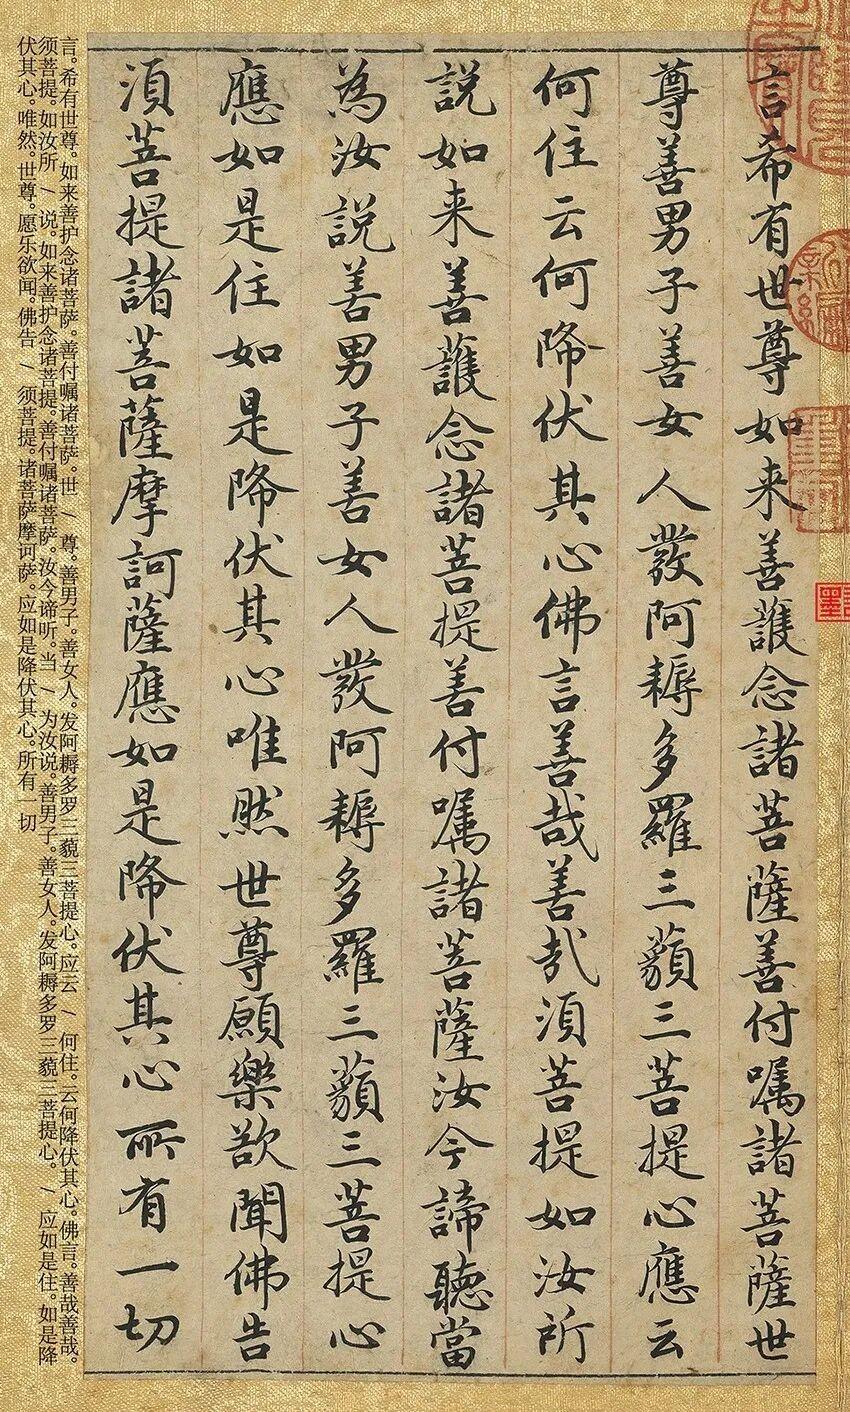 言希有世尊如来善護念諸菩薩善付囑諸菩薩世
尊善男子善女人發阿耨多羅三藐三菩提心應云
何住云何降伏其心佛言善哉善哉須菩提如汝所
説如来善護念諸菩提善付囑諸菩薩汝今諦聽當
為汝説善男子善女人發阿耨多羅三藐三菩提心
應如是住如是降伏其心唯然世尊願樂欲聞佛告
須菩提諸菩薩摩訶薩應如是降伏其心所有一切
言。希有世尊。如来善护念诸菩萨。善付嘱诸菩萨。世 / 尊。善男子。善女人。发阿耨多罗三藐三菩提心。应云 / 何住。云何降伏其心。佛言。善哉善哉。
须菩提。如汝所 / 说。如来善护念诸菩提。善付嘱诸菩萨。汝今谛听。当 / 为汝说。善男子。善女人。发阿耨多罗三藐三菩提心。 / 应如是住。如是降
伏其心。唯然。世尊。愿乐欲闻。佛告 / 须菩提。诸菩萨摩诃萨。应如是降伏其心。所有一切